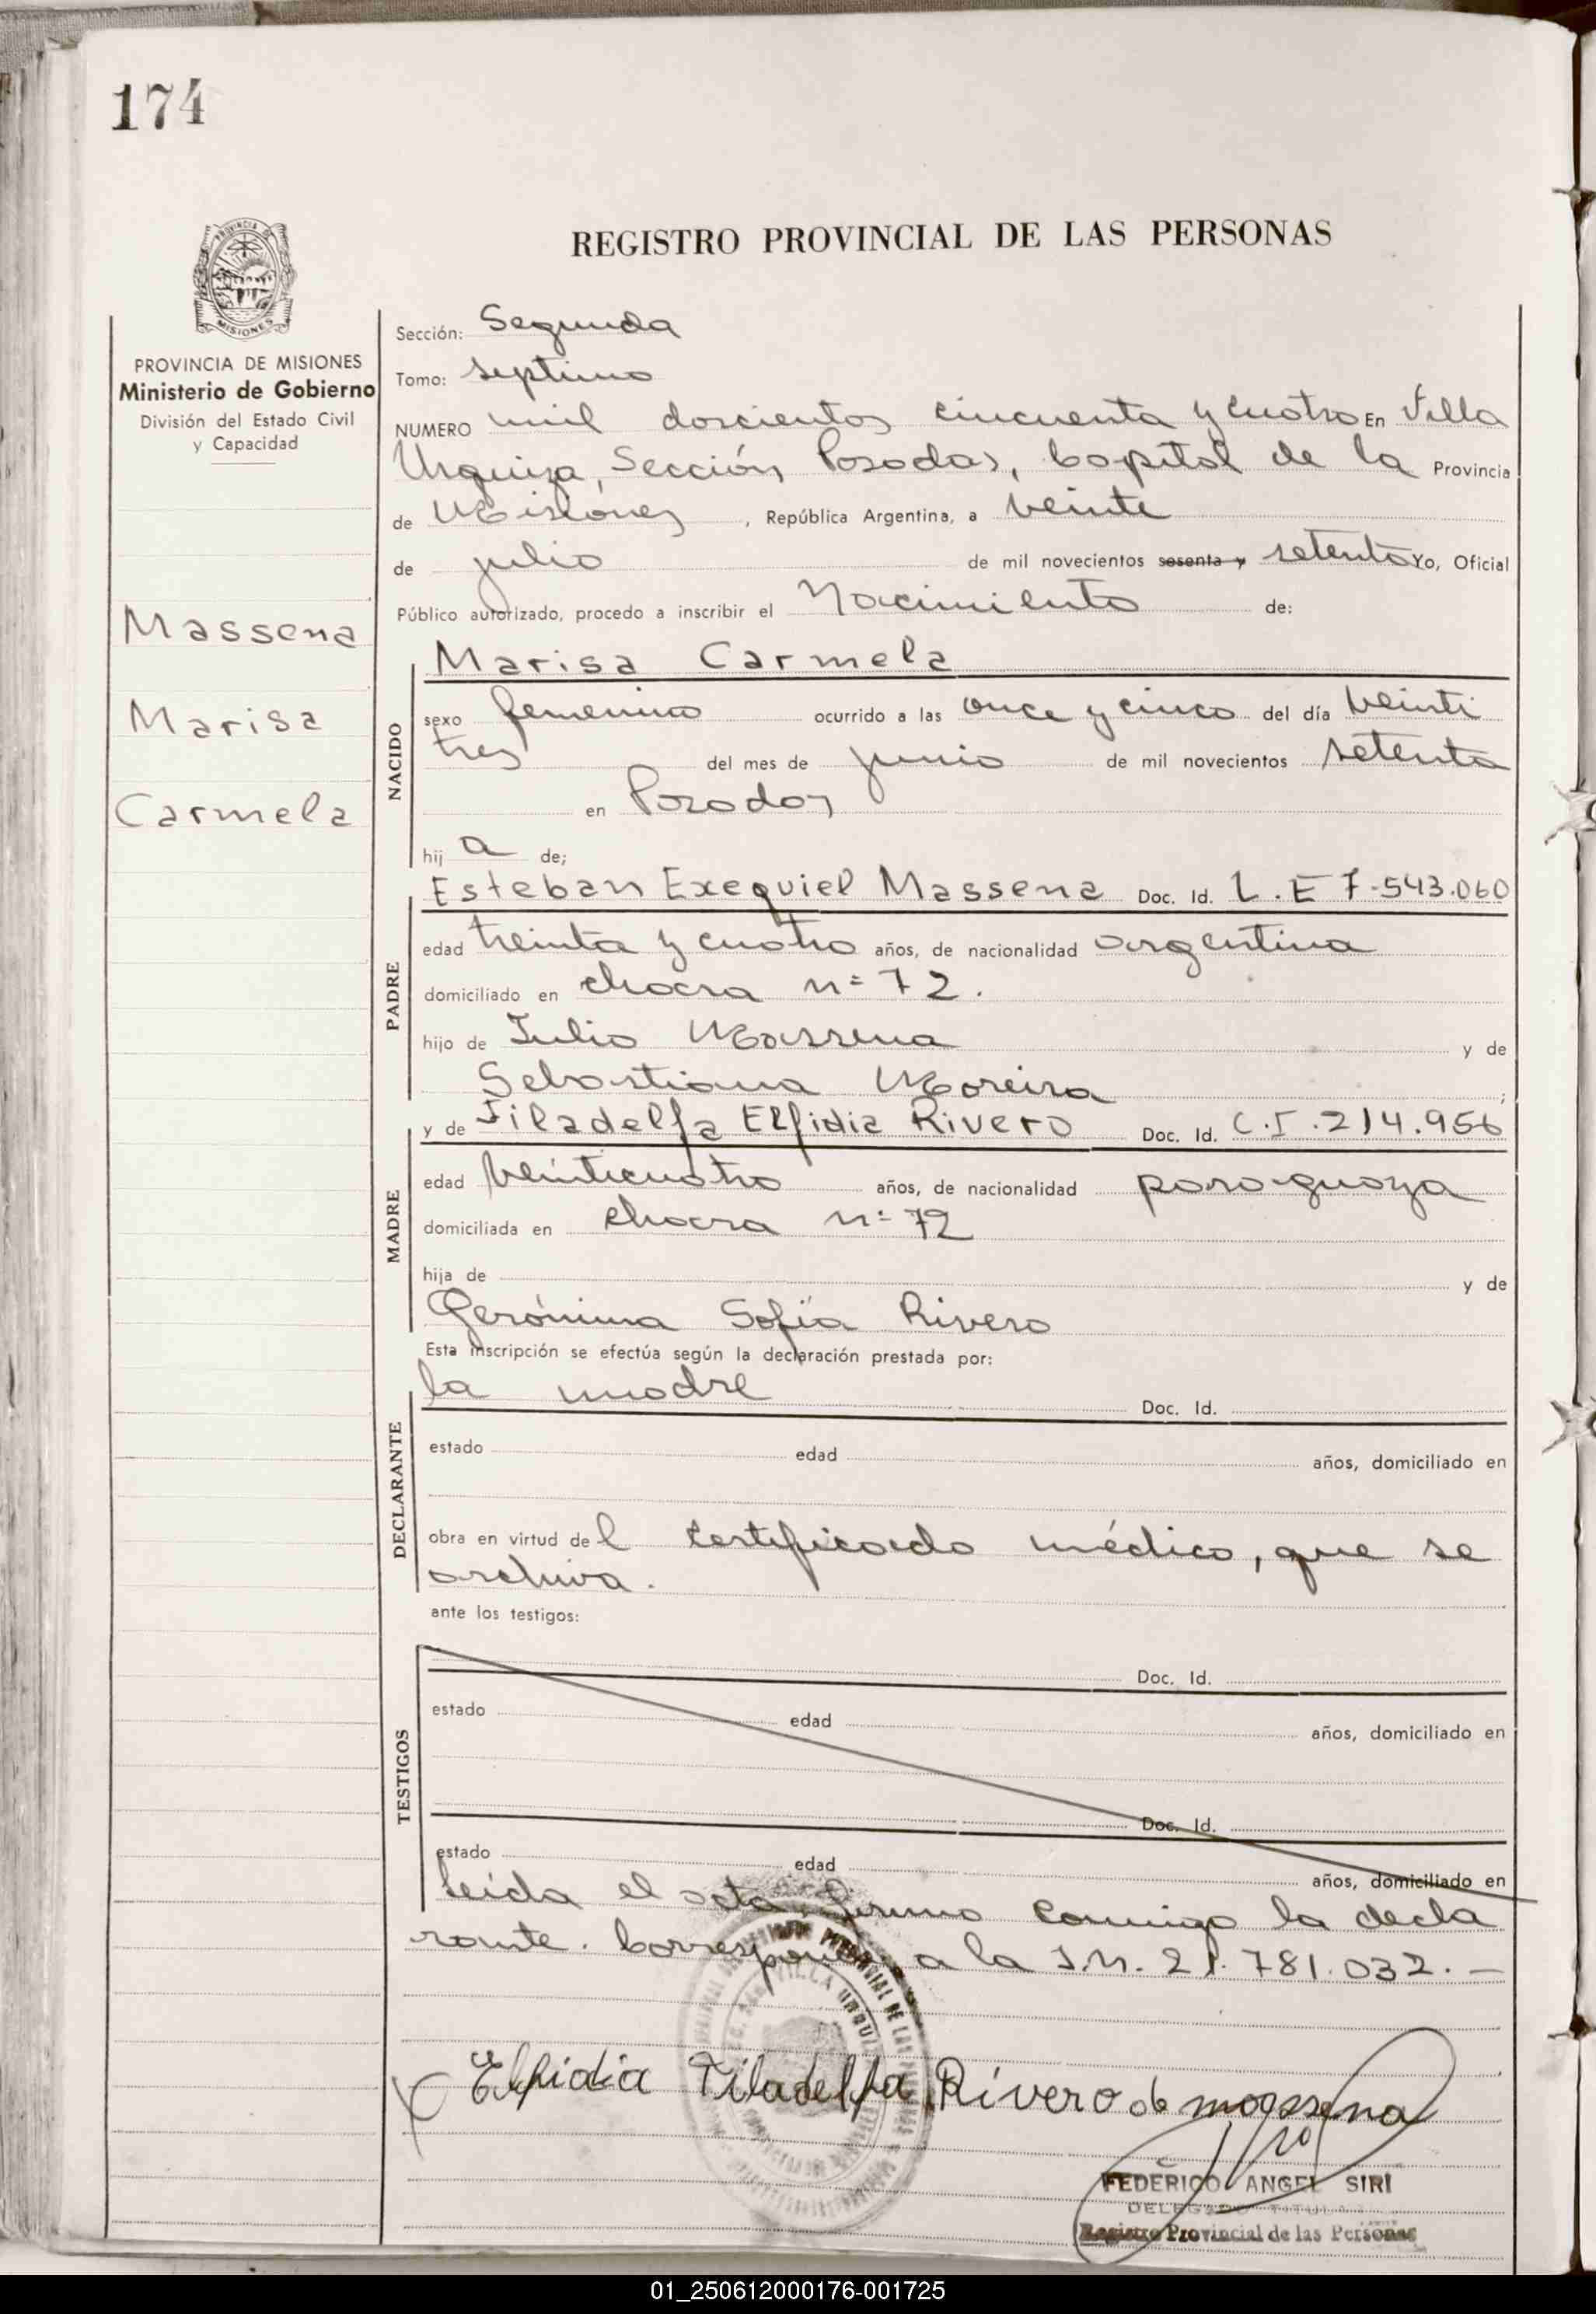 174
REGISTRO PROVINCIAL DE LAS PERSONAS
PROVINCIA DE MISIONES
Ministerio de Gobierno
División del Estado Civil
y Capacidad
Massena
Marisa
Carmela
Sección: Segunda
Tomo: septimo
NUMERO mil doscientos cincuenta y cuatro En Villa
Urquiza, Sección Posadas, Capital de la Provincia
de Misiones, República Argentina, a veinte
de julio de mil novecientos sesenta y setenta Yo, Oficial
Público autorizado, procedo a inscribir el Nacimiento de:
NACIDO
Marisa Carmela
sexo femenino ocurrido a las once y cinco del día veinti
tres del mes de junio de mil novecientos setenta
en Posadas
hij a de;
PADRE
Esteban Exequiel Massena Doc. Id. L.E 7.543.060
edad treinta y cuatro años, de nacionalidad argentina
domiciliado en chacra n= 72.
hijo de Julio Massena y de
Sebastiana Moreira;
MADRE
y de Filadelfa Elfidia Rivero Doc. Id. C.I.214.956
edad veinticuatro años, de nacionalidad paraguaya
domiciliada en chacra n= 72
hija de y de
Gerónima Sofía Rivero
Esta inscripción se efectúa según la declaración prestada por:
DECLARANTE
la madre Doc. Id.
estado edad años, domiciliado en
obra en virtud del certificado médico, que se
archiva.
ante los testigos:
TESTIGOS
Doc. Id.
estado edad años, domiciliado en
Doc. Id.
estado edad años, domiciliado en
Leida el acta, firma conmigo la decla
rante. Corresponde a la I.N. 21.781.032.—
Elfidia Filadelfa Rivero de massena
FEDERICO ANGEL SIRI
DELEGADO TITULAR
Registro Provincial de las Personas
01_250612000176-001725